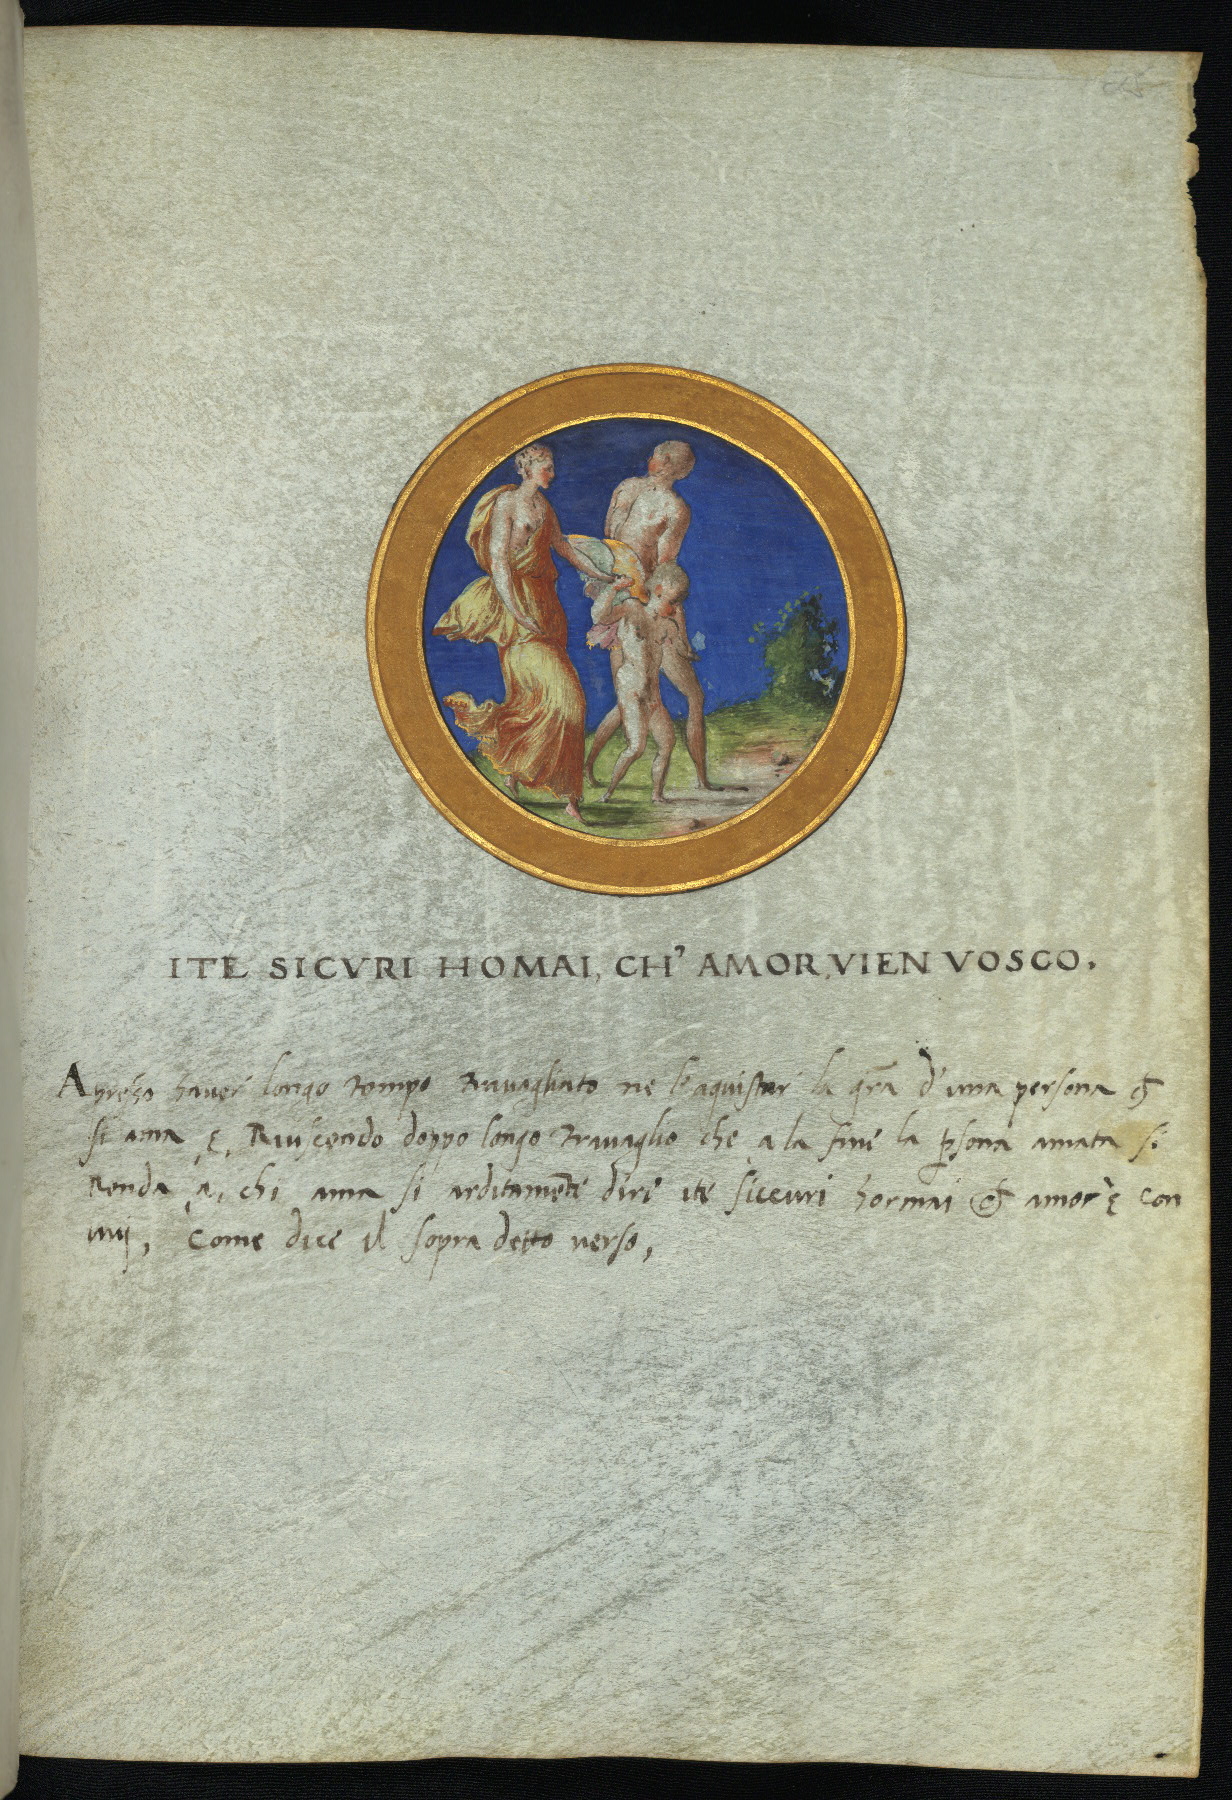 ITE SICVRI HOMAI, CH' AMOR, VIEN VOSCO.
Apresso haver longo tempo travagliato ne l'aquistar la gr̃a d'una persona
si ama, e, Riuscendo doppo longo travaglio che a la fine la ꝑsona amata si
Renda, a, chi ama si arditamẽte dire ite siccuri hormai amor è con
come dice il sopra detto verso,